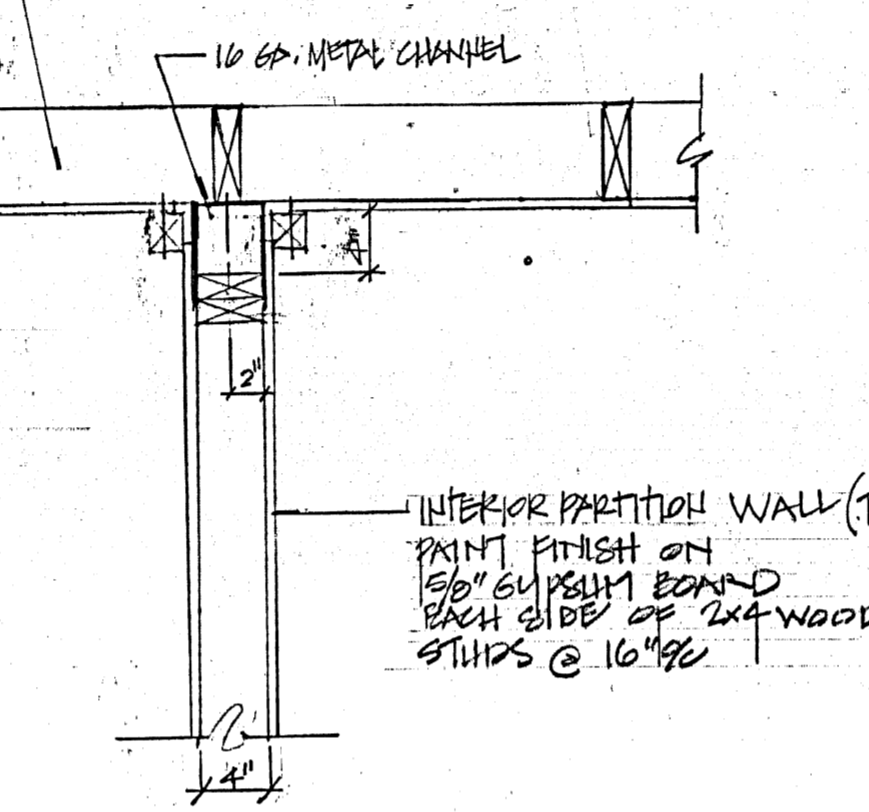 16 GA. METAL CHANNEL
4"
2"
INTERIOR PARTITION WALL (T
PAINT FINISH ON
5/8" GYPSUM BOARD
EACH SIDE OF 2x4 WOOD
STUDS @ 16" O/C
4"